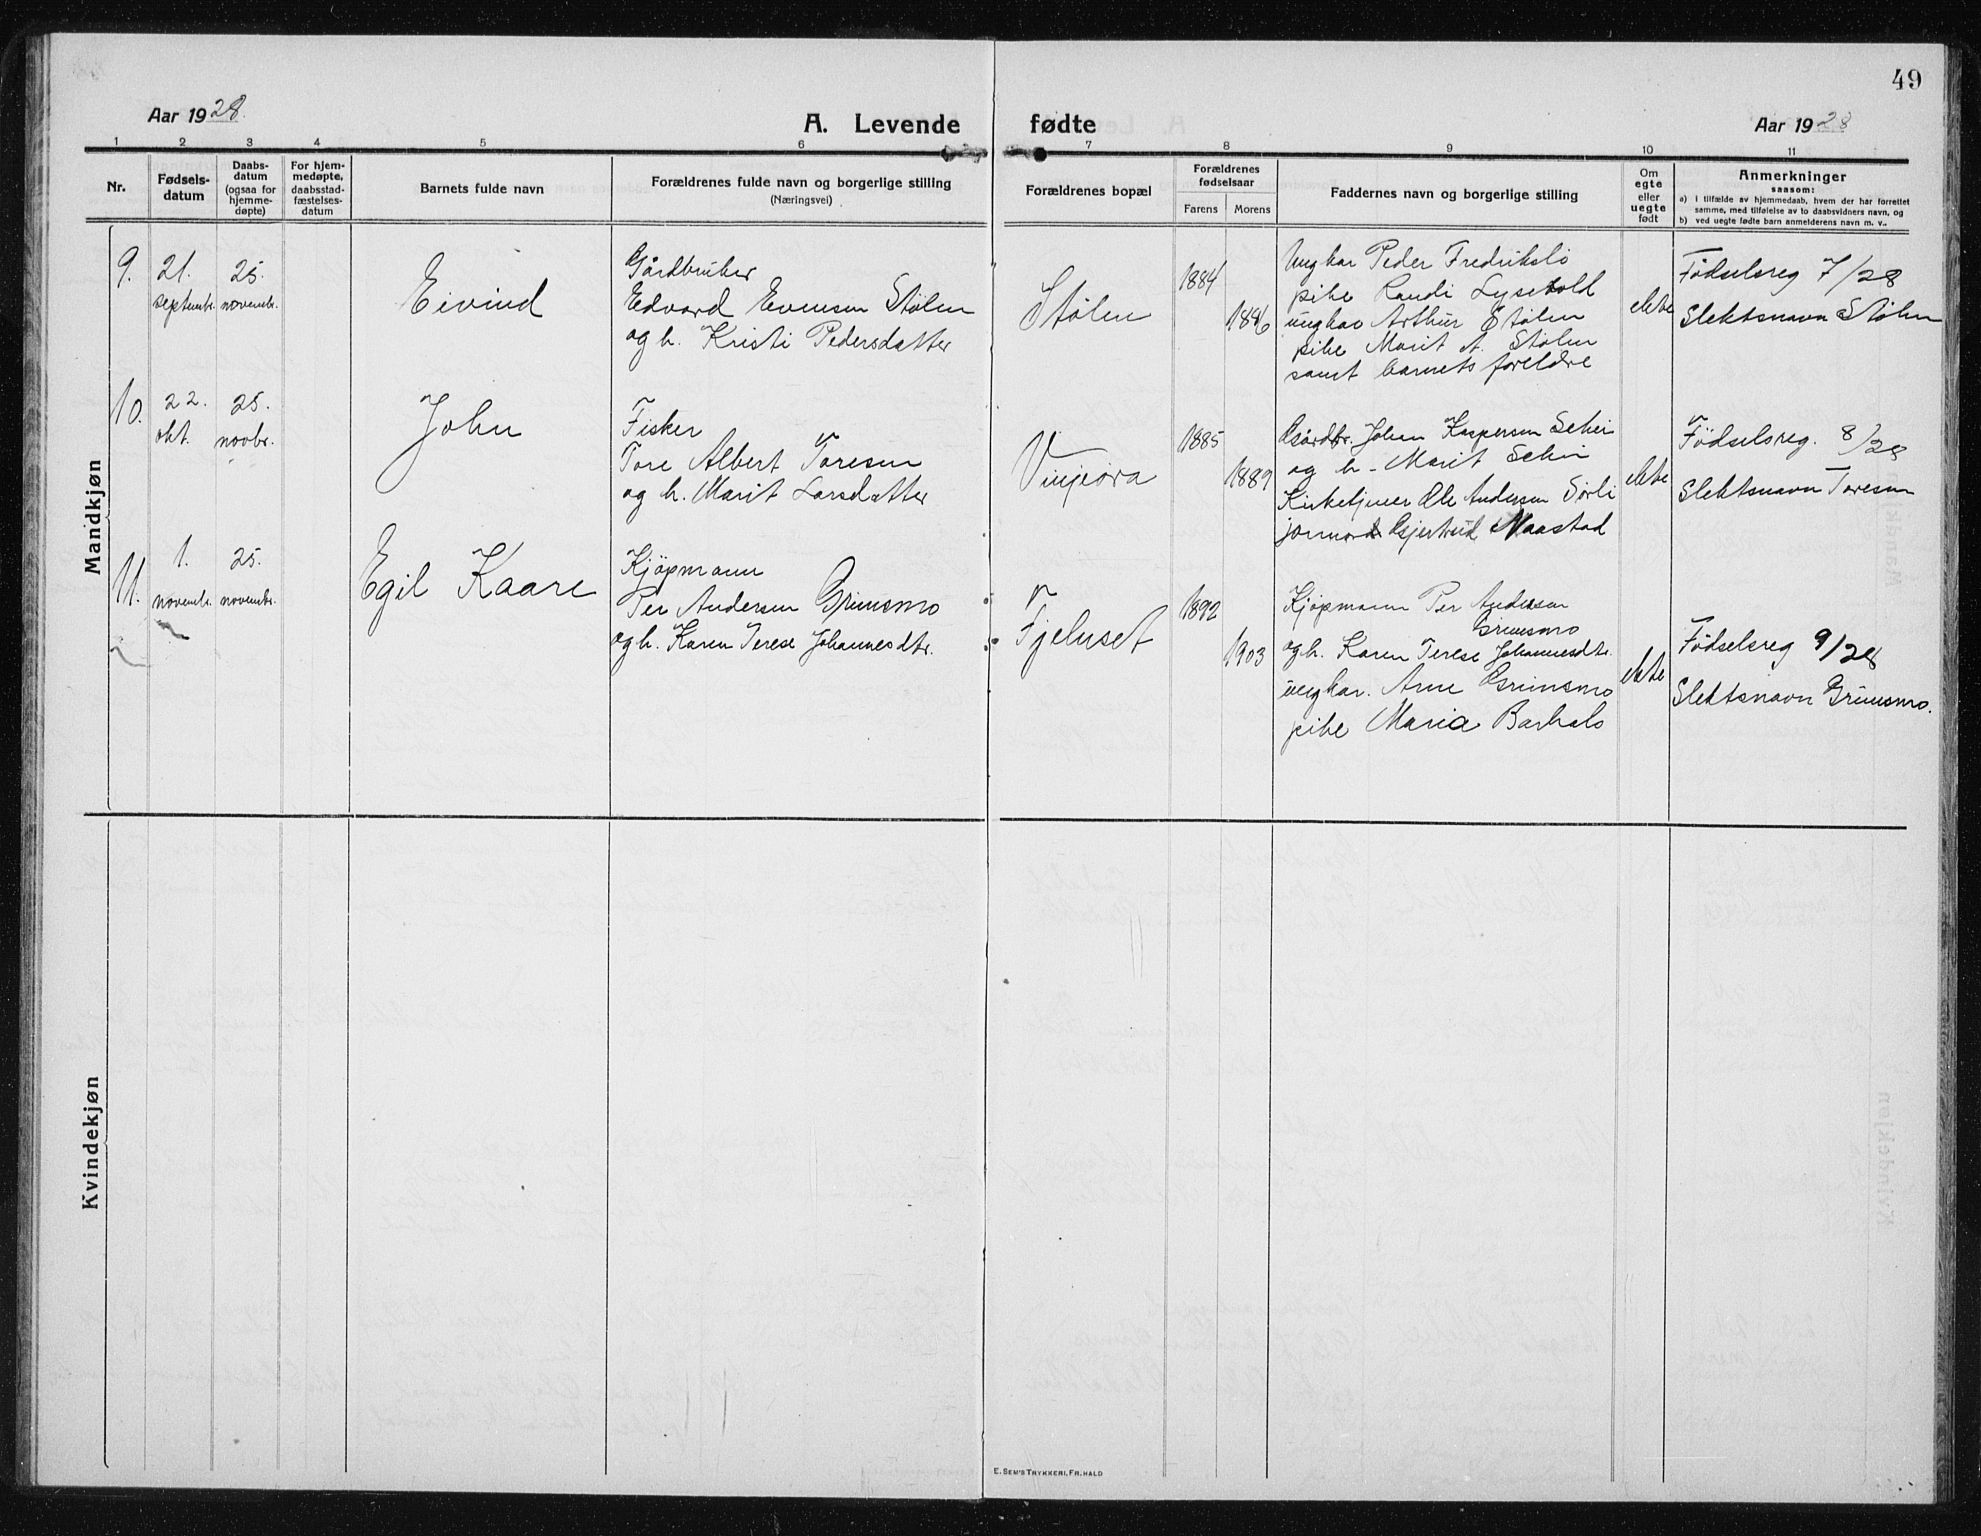 49
Aar 1928.
A. Levende fødte
Aar 1928
1 2 3 4 5 6 7 8 9 10 11
Nr.
Fødsels-
datum
Daabs-
datum
(ogsaa for
hjemme-
døpte)
For hjem-
medøpte,
daabsstad-
fæstelses-
datum
Barnets fulde navn
Forældrenes fulde navn og borgerlige stilling
(Næringsvei)
Forældrenes bopæl
Forældrenes
fødselsaar
Farens Morens
Faddernes navn og borgerlige stilling
Om
egte
eller
uegte
født
Anmerkninger
saasom:
a) i tilfælde av hjemmedaab, hvem der har forrettet
samme, med tilføielse av to daabsvidners navn, og
b) ved uegte fødte barn anmelderens navn m. v..
Mandkjøn
9.
21.
septembr.
25.
novembr.
Eivind
Gårdbruker
Edvard Evensen Stølen
og h. Kristi Pedersdatter
Stølen
1884
1896
Ungkar Peder Fredrikslo
pike Randi
ungkar Arthur Stølen
pike Marit A. Stølen
samt barnets foreldre
ekte
Fødselsreg 7/28
Slektsnavn Stølen
10.
22.
okt.
25.
novbr.
John
Fisker
Tore Albert Toresen
og h. Marit Larsdatter
Vinjeøra
1885
1889
Gårdbr. Johan Kaspersen
og h. Marit
Kirketjener Ole Andersen Sørli
jormor Gjertrud Maastad
ekte
Fødselsreg. 8/28
Slektsnavn Toresen
11.
1.
novembr.
25.
novembr.
Egil Kaare
Kjøpmann
Per Andersen Grimsmo
og h. Karen Terese Johannesdtr.
Fjelnset
1892
1903
Kjøpmann Per Andersen
Grimsmo
og h. Karen Terese Johannesdtr.
ungkar. Arne Grimsmo
pike Maria Barhals
ekte
Fødselsreg 9/28
Slektsnavn Grimsmo.
Kvindekjøn
E. Sem's Trykkeri, Fr.hald